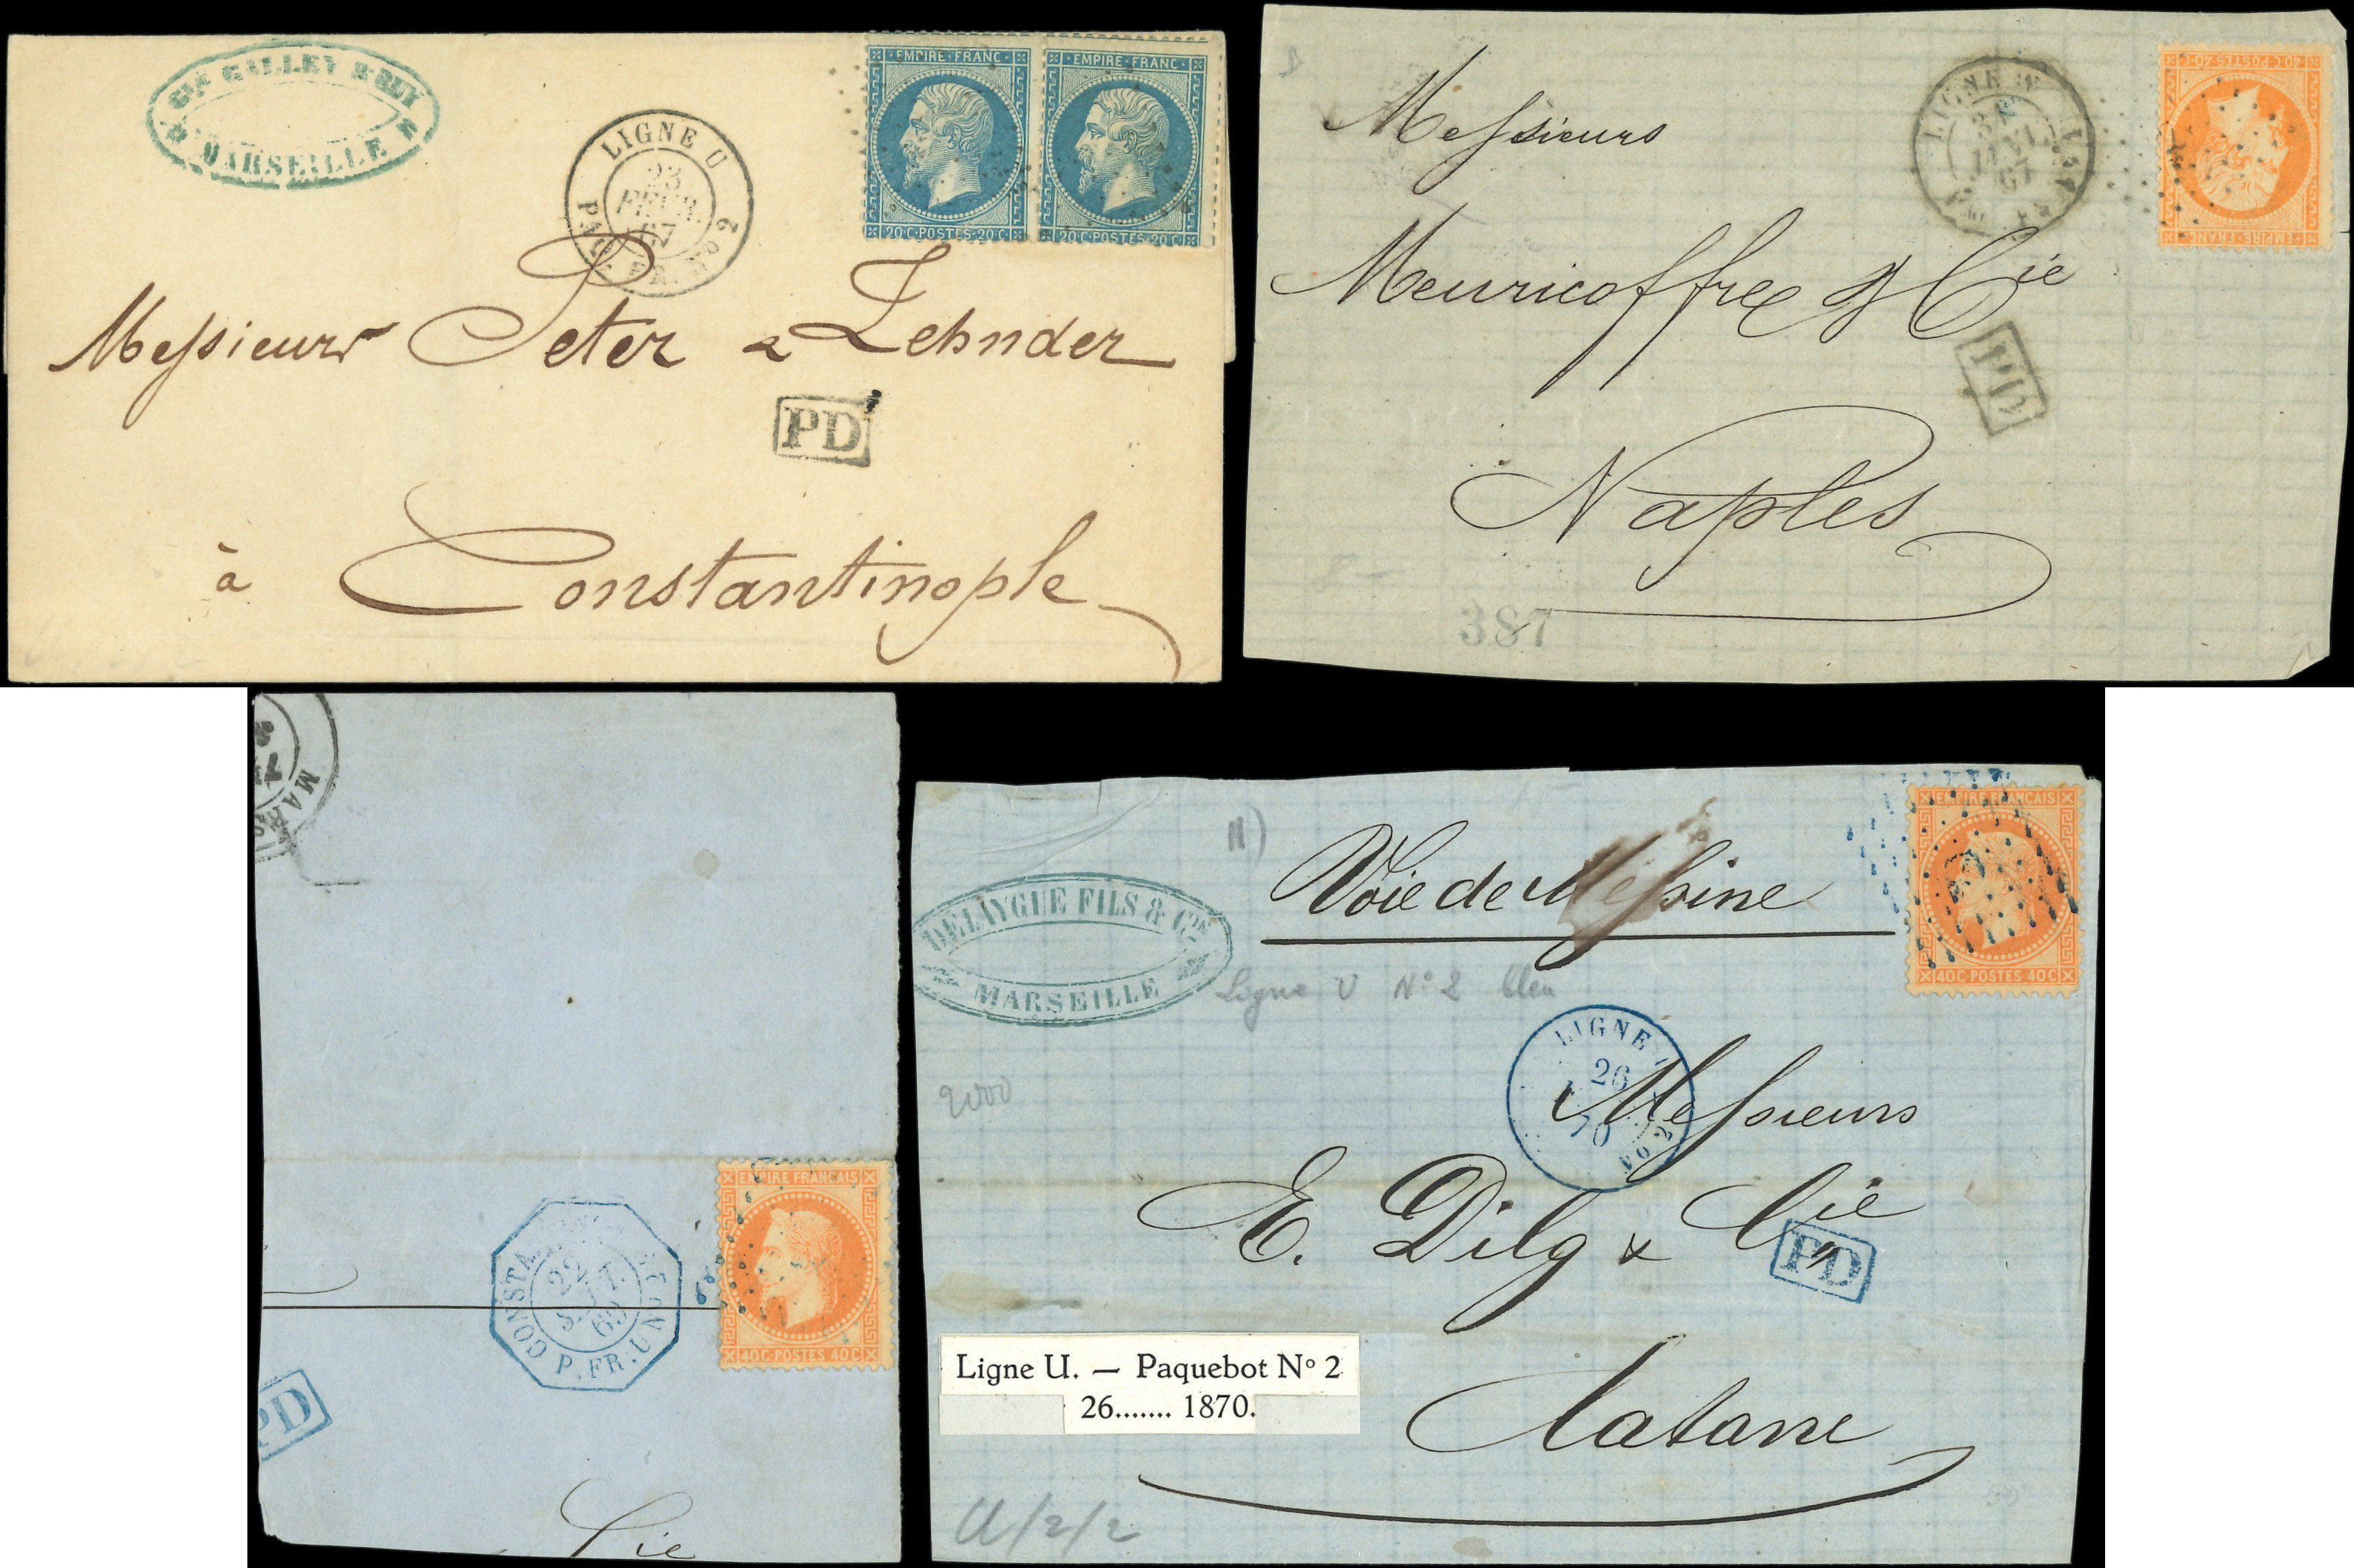 Cie GALLEY & RUY
MARSEILLE
LIGNE U
23
FEVR.
67
PAQ. FR. No 2
EMPIRE·FRANC·
20C·POSTES·20C
EMPIRE·FRANC·
20C·POSTES·20C
Messieurs Peter & Zehnder
PD
à Constantinople
LIGNE
JANV.
67
40·C·POSTES·40·C
EMPIRE·FRANC·
Messieurs
Meuricoffre & Cie
PD
Naples
387
MARS
EMPIRE FRANCAIS
40C·POSTES·40C
CONSTA
22
SEPT.
69
P. FR. U No
PD
Cie
EMPIRE FRANCAIS
40C·POSTES·40C
Voie de Messine
DELAYGUE FILS & Cie
MARSEILLE
Ligne U No 2 bleu
LIGNE
26
70
No 2
2000
Messieurs
E. Dilg & Cie
PD
Ligne U. — Paquebot No 2
26....... 1870.
Catane
U/2/2